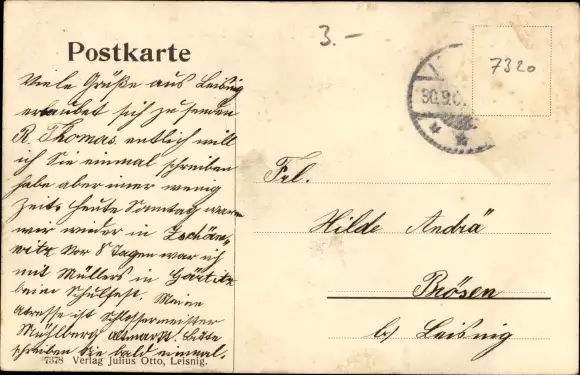 3.-
7320
Postkarte
30.9.0
Viele Grüße aus Leisnig
erlaubet sich zu senden
R. Thomas. entlich will
ich Sie einmal schreiben
habe aber imer wenig
Zeit. Heute Sonntag waren
wir wieder in Zschön,,
witz Vor 8 Tagen war ich
mit Müllers in Görtitz
beim Schulfest. Meine
Adresse ist Schlossermeister
Mühlberg altmarkt. Bitte
schreiben Sie bald einmal.
Frl.
Hilde Andrä
Brösen
b/ Leisnig
7378 Verlag Julius Otto, Leisnig.